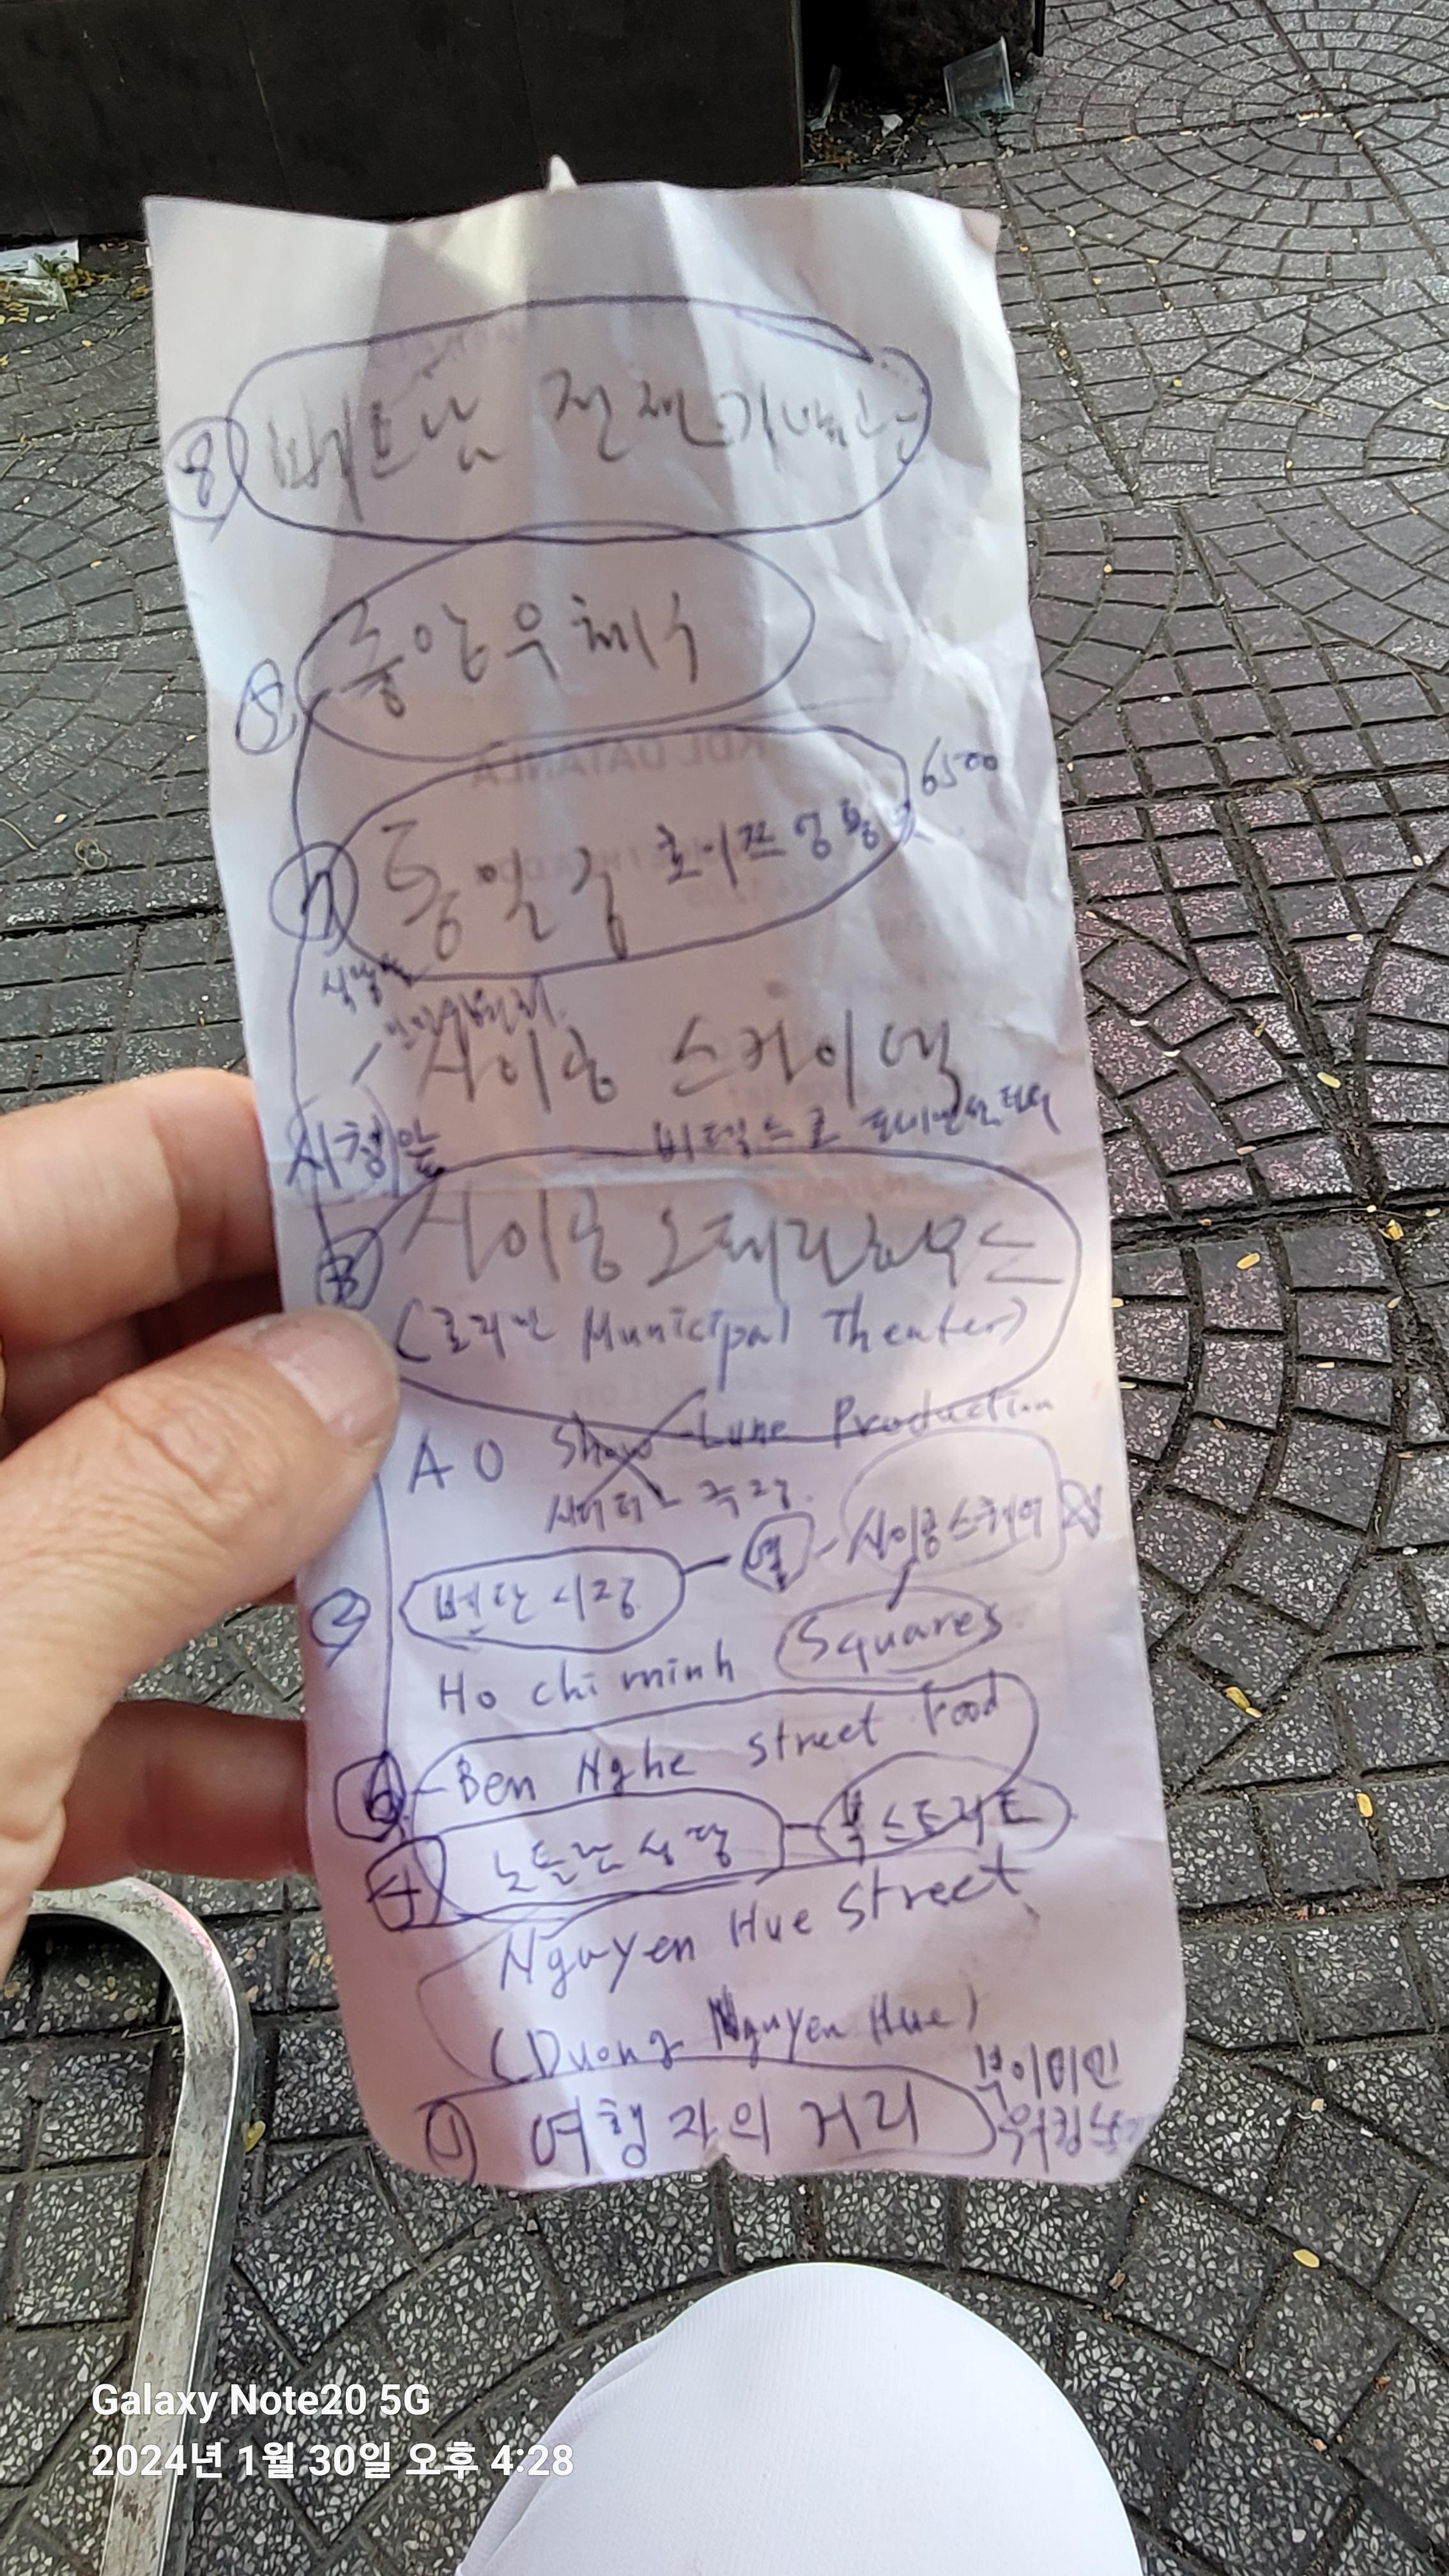 ⑧ 베트남 전쟁기념관
⑤ 중앙우체국
⑦ 통일궁 호이쯔엉통 6500
사이공 스카이덱
시청 앞
비텍스코 파이낸셜 타워
③ 사이공 오페라하우스
(호치민 Municipal Theater)
A O Show - Lune Production
시티 극장.
② 벤탄시장 - 옆 - 사이공스퀘어
Ho chi minh Squares.
⑥ Ben Nghe street Food
④ 노틀담 성당 - 북스트리트
Nguyen Hue Street
(Duong Nguyen Hue)
① 여행자의 거리
부이비엔
워킹
Galaxy Note20 5G
2024년 1월 30일 오후 4:28